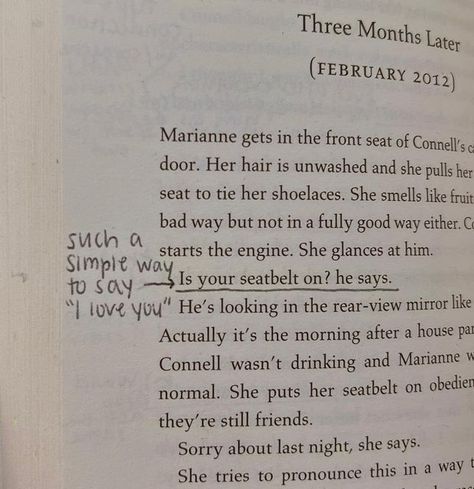 Three Months Later
(FEBRUARY 2012)
Marianne gets in the front seat of Connell's
door. Her hair is unwashed and she pulls her
seat to tie her shoelaces. She smells like fruit
bad way but not in a fully good way either.
starts the engine. She glances at him.
such a
simple way
to say
"I love you"
Is your seatbelt on? he says.
He's looking in the rear-view mirror like
Actually it's the morning after a house
Connell wasn't drinking and Marianne
normal. She puts her seatbelt on
they're still friends.
Sorry about last night, she says.
She tries to pronounce this in a way